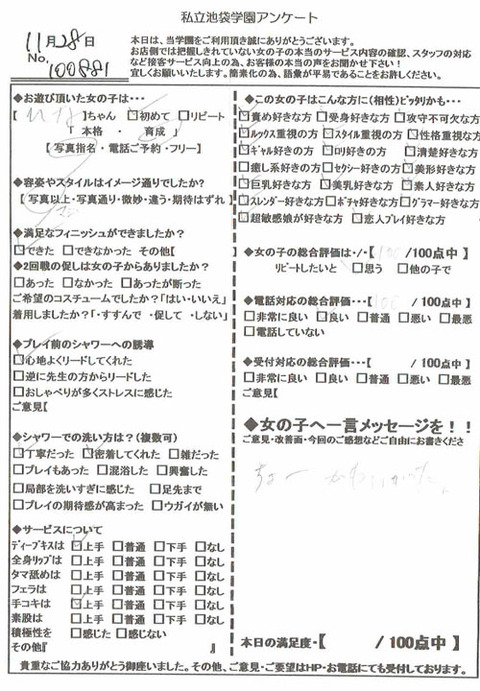 私立池袋学園アンケート
11月28日
No.
100881
本日は、当学園をご利用頂き誠にありがとうございます。
お店側では把握しきれていない女の子の本当のサービス内容の確認、スタッフの対応
など接客サービス向上の為、お客様の本当の声をお聞かせ下さい!
宜しくお願いいたします。簡素化の為、語彙が平易であることをお許しください。
◆お遊び頂いた女の子は・・・
【 ひな 】ちゃん □初めて □リピート
「 本格 ・ 育成 」
【 写真指名・電話ご予約・フリー】
◆容姿やスタイルはイメージ通りでしたか?
【 写真以上・写真通り・微妙・違う・期待はずれ 】
◆満足なフィニッシュができましたか?
□できた □できなかった その他【
◆2回戦の促しは女の子からありましたか?
□あった □なかった □あったが断った
ご希望のコスチュームでしたか?「はい・いいえ」
着用しましたか?「・すすんで ・促して ・しない」
◆プレイ前のシャワーへの誘導
□心地よくリードしてくれた
□逆に先生の方からリードした
□おしゃべりが多くストレスに感じた
ご意見【
◆シャワーでの洗い方は?(複数可)
□丁寧だった □密着してくれた □雑だった
□プレイもあった □混浴した □興奮した
□局部を洗いすぎに感じた □足先まで
□プレイの期待感が高まった □ウガイが無い
◆サービスについて
ディープキスは □上手 □普通 □下手 □なし
全身リップは □上手 □普通 □下手 □なし
タマ舐めは □上手 □普通 □下手 □なし
フェラは □上手 □普通 □下手 □なし
手コキは □上手 □普通 □下手 □なし
素股は □上手 □普通 □下手 □なし
積極性を □感じた □感じない
その他『 』
◆この女の子はこんな方に(相性)ピッタリかも・・・
□責め好きな方 □受身好きな方 □攻守不可欠な方
□ルックス重視の方 □スタイル重視の方 □性格重視な方
□ギャル好きの方 □ロリ好きの方 □清楚好きな方
□癒し系好きな方 □セクシー好きの方 □美形好きな方
□巨乳好きな方 □美乳好きな方 □素人好きな方
□スレンダー好きな方 □ポチャ好きな方 □グラマー好きな方
□超敏感娘が好きな方 □恋人プレイ好きな方
◆女の子の総合評価は・/・【 100 /100点中 】
リピートしたいと □思う □他の子で
◆電話対応の総合評価・・・【 100 / 100点中 】
□非常に良い □良い □普通 □悪い □最悪
□電話していない
◆受付対応の総合評価・・・【 / 100点中 】
□非常に良い □良い □普通 □悪い □最悪
ご意見【
◆女の子へ一言メッセージを!!
ご意見・改善画・今回のご感想などご自由にお書きくださ
ちょー かわいかった。
本日の満足度-【 / 100点中 】
貴重なご協力ありがとう御座いました。その他、ご意見・ご要望はHP・お電話にても受付しております。